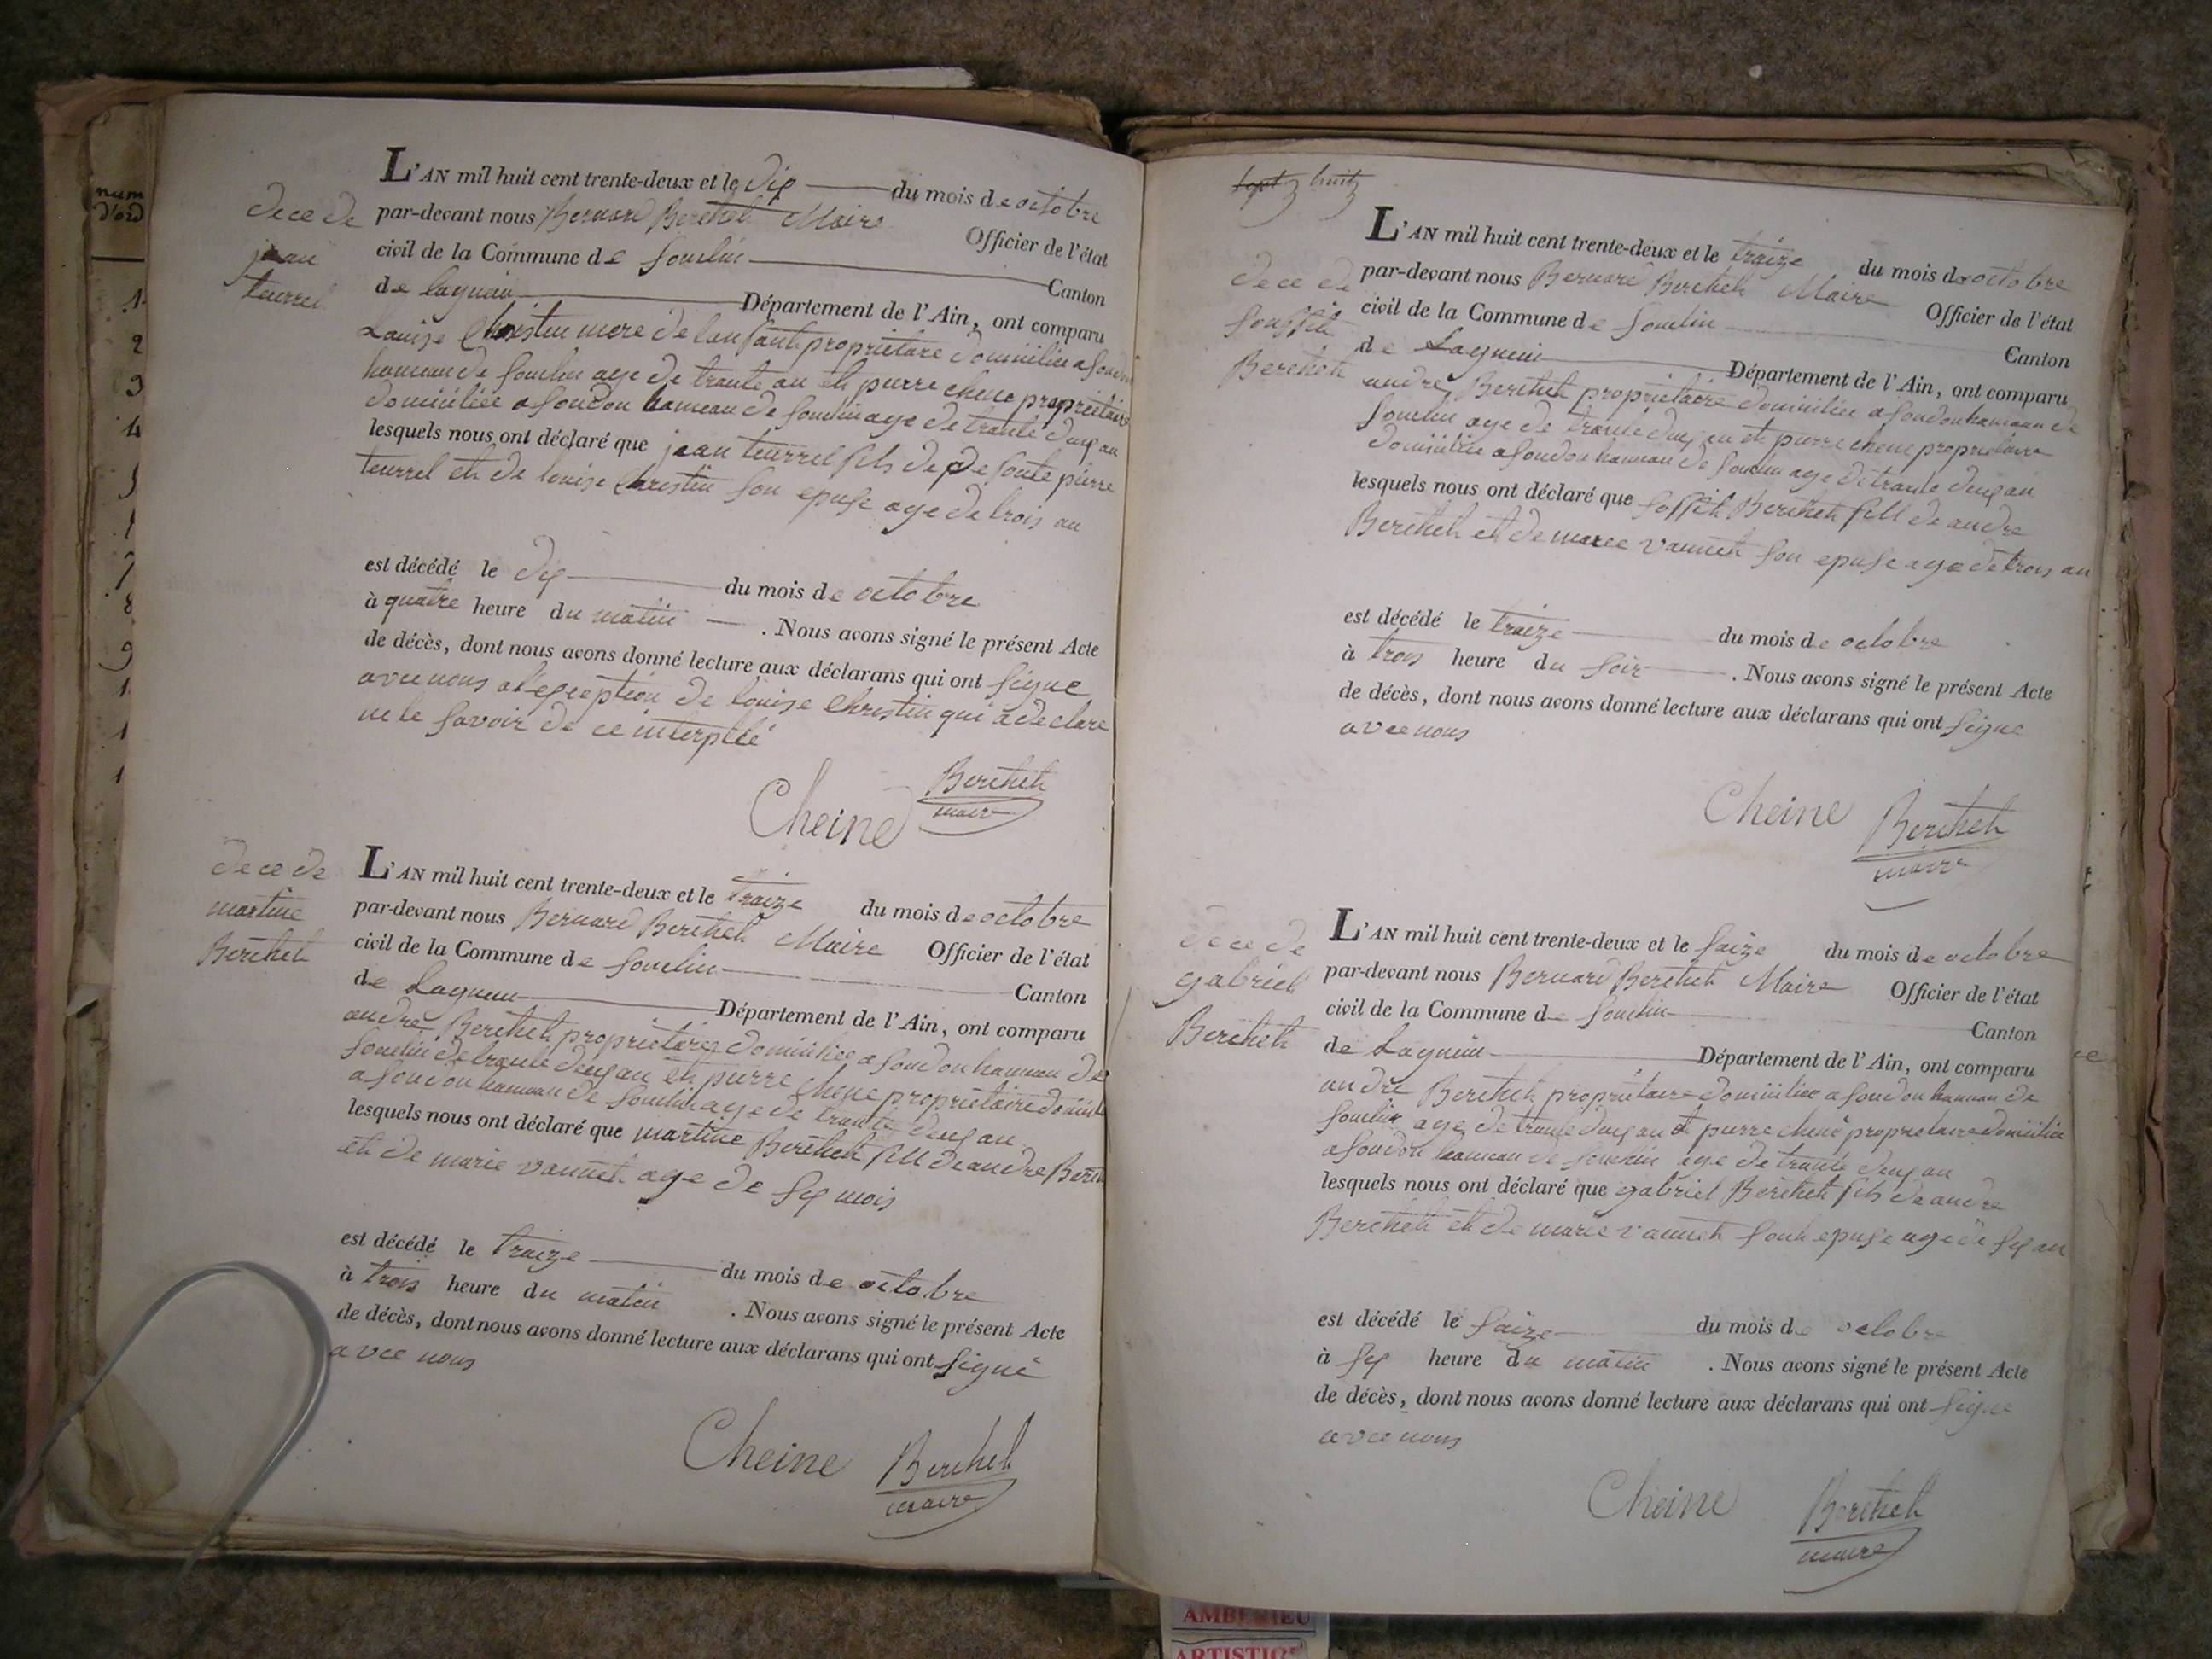 num
d'ord
1
2
3
4
5
7
8
9
1
1
1
dece de
jean
teurrel
L'AN mil huit cent trente-deux et le dix du mois de octobre
par-devant nous Bernard Berthet Maire Officier de l'état
civil de la Commune de Souclin Canton
de Lagnieu Département de l'Ain, ont comparu
Louise Christin mere de lenfant propriétare domiciliee a soudon
hameau de souclin age de trante an et pierre chene proprietaire
domiciliee a soudon hameau de souclin age de trante deux an
lesquels nous ont déclaré que jean teurrel fils de defonte pierre
teurrel et de louise Christin son epuse age de trois an
est décédé le dix du mois de octobre
à quatre heure du matin . Nous avons signé le présent Acte
de décès, dont nous avons donné lecture aux déclarans qui ont signe
avec nous a l'exception de louise Christin qui a declare
ne le savoir de ce interpellé
Cheine Berthet
maire
dece de
martine
Berthet
L'AN mil huit cent trente-deux et le traize du mois de octobre
par-devant nous Bernard Berthet Maire Officier de l'état
civil de la Commune de Souclin Canton
de Lagnieu Département de l'Ain, ont comparu
andre Berthet propriétaire domiciliee a soudon hameau de
souclin de trante deux an et pierre chene proprietaire domicilie
a soudon hameau de souclin age de trante deux an
lesquels nous ont déclaré que martine Berthet fill de andre Berth
et de marie vannet age de six mois
est décédé le traize du mois de octobre
à trois heure du matin . Nous avons signé le présent Acte
de décès, dont nous avons donné lecture aux déclarans qui ont signé
avec nous
Cheine Berthet
maire
sept huit
dece de
Berthet
L'AN mil huit cent trente-deux et le traize du mois de octobre
par-devant nous Bernard Berthet Maire Officier de l'état
civil de la Commune de Souclin Canton
de Lagnieu Département de l'Ain, ont comparu
andre Berthet propriétaire domiciliee a soudon hameau de
souclin age de trante deux an et pierre chene proprietaire
domiciliee a soudon hameau de souclin age de trante deux an
lesquels nous ont déclaré que Berthet fill de andre
Berthet et de marie vannet son epuse age de trois an
est décédé le traize du mois de octobre
à trois heure du soir . Nous avons signé le présent Acte
de décès, dont nous avons donné lecture aux déclarans qui ont signe
avec nous
Cheine Berthet
maire
dece de
gabriel
Berthet
L'AN mil huit cent trente-deux et le saize du mois de octobre
par-devant nous Bernard Berthet Maire Officier de l'état
civil de la Commune de Souclin Canton
de Lagnieu Département de l'Ain, ont comparu
andre Berthet propriétaire domiciliee a soudon hameau de
souclin age de trante deux an et pierre chene proprietaire domicilie
a soudon hameau de souclin age de trante deux an
lesquels nous ont déclaré que gabriel Berthet fils de andre
Berthet et de marie vannet sont epuse age de six an
est décédé le saize du mois de octobre
à six heure du matin . Nous avons signé le présent Acte
de décès, dont nous avons donné lecture aux déclarans qui ont signe
avec nous
Cheine Berthet
maire
AMBERIEU